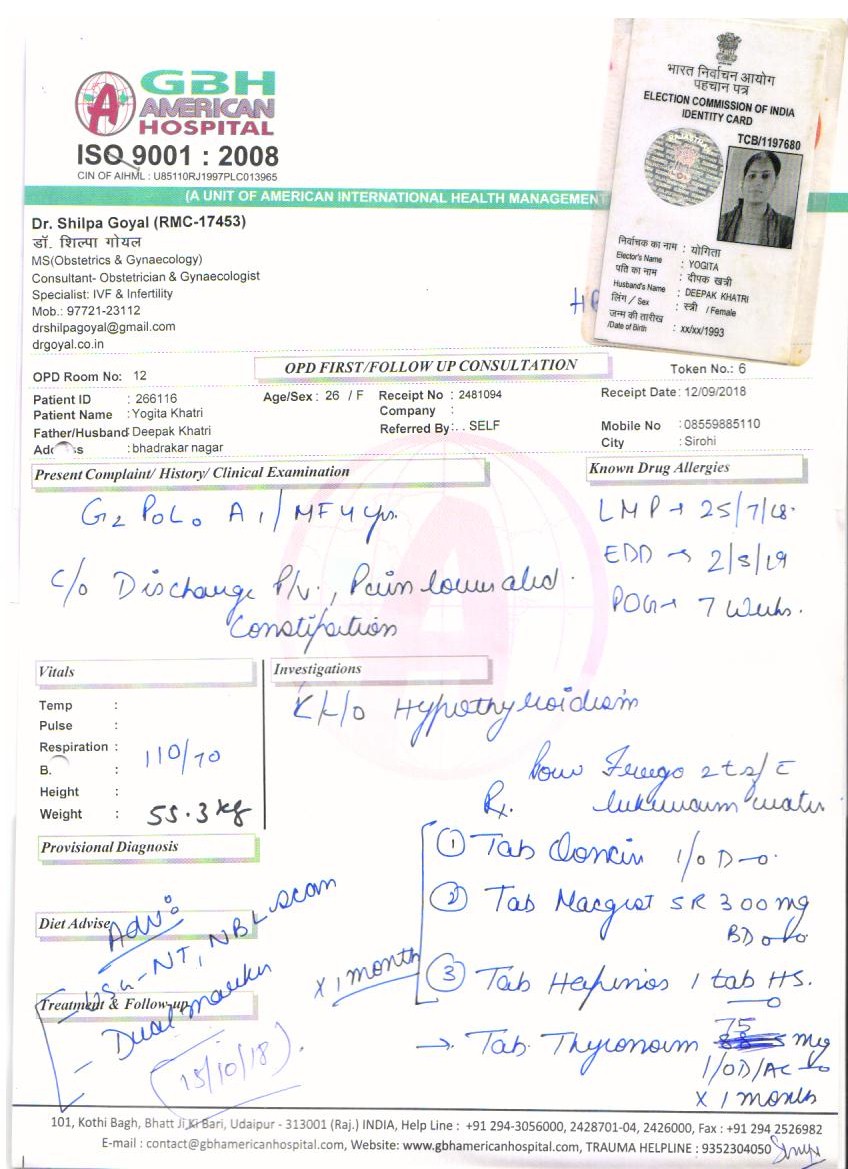 GBH
AMERICAN
HOSPITAL
ISO 9001 : 2008
CIN OF AIHML : U85110RJ1997PLC013965
(A UNIT OF AMERICAN INTERNATIONAL HEALTH MANAGEMENT
भारत निर्वाचन आयोग
पहचान पत्र
ELECTION COMMISSION OF INDIA
IDENTITY CARD
TCB/1197680
RAJASTHAN
निर्वाचक का नाम : योगिता
Elector's Name : YOGITA
पति का नाम : दीपक खत्री
Husband's Name : DEEPAK KHATRI
लिंग / Sex : स्त्री / Female
जन्म की तारीख
/Date of Birth : xx/xx/1993
Dr. Shilpa Goyal (RMC-17453)
डॉ. शिल्पा गोयल
MS(Obstetrics & Gynaecology)
Consultant- Obstetrician & Gynaecologist
Specialist: IVF & Infertility
Mob.: 97721-23112
drshilpagoyal@gmail.com
drgoyal.co.in
OPD Room No: 12
OPD FIRST/FOLLOW UP CONSULTATION
Token No.: 6
Patient ID : 266116 Age/Sex : 26 / F Receipt No : 2481094 Receipt Date: 12/09/2018
Patient Name : Yogita Khatri Company :
Father/Husband Deepak Khatri Referred By: . . SELF Mobile No :08559885110
: bhadrakar nagar City : Sirohi
Present Complaint/ History/ Clinical Examination
Known Drug Allergies
G2 P0L0 A1 / MF 4 yrs.
LMP → 25/7/18.
EDD → 2/5/19
POG → 7 Weeks.
c/o Discharge P/v., Pain lower abd.
Constipation
Vitals
Investigations
K/c/o Hypothyroidism
Temp :
Pulse :
Respiration :
B. : 110/70
Height :
Weight : 55.3 kg
2tsf c
Rx. lukewarm water
Provisional Diagnosis
① Tab 1/OD
② Tab SR 300 mg
BD
③ Tab 1 tab HS.
x 1 month
Diet Advise
Adv:
USG-NT, NBL scan
Treatment & Follow-up
- Dual marker
15/10/18
→ Tab. Thyronorm 75 mg
1/OD/AC
x 1 month
101, Kothi Bagh, Bhatt Ji Ki Bari, Udaipur - 313001 (Raj.) INDIA, Help Line : +91 294-3056000, 2428701-04, 2426000, Fax : +91 294 2526982
E-mail : contact@gbhamericanhospital.com, Website: www.gbhamericanhospital.com, TRAUMA HELPLINE : 9352304050